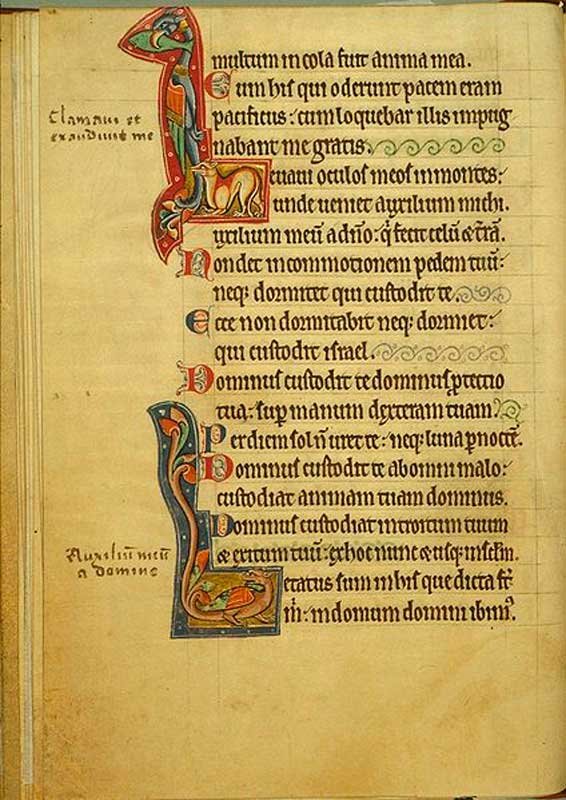 multum incola fuit anima mea.
Cum his qui oderunt pacem eram
pacificus: cum loquebar illis inpug
nabant me gratis.
Clamaui et
exaudiuit me
Leuaui oculos meos in montes:
unde ueniet auxilium michi.
uxilium meū a dnō: q̄ fecit celū & t̄rā.
Non det in commotionem pedem tuū:
neq; dormitet qui custodit te.
Ecce non dormitabit neq; dormiet:
qui custodit israel.
Dominus custodit te dominus ꝓtectio
tua: sup manum dexteram tuam.
Per diem sol n̄ uret te: neq; luna p noctē.
Dominus custodit te ab omni malo:
custodiat animam tuam dominus.
Dominus custodiat introitum tuum
& exitum tuū: ex hoc nunc & usq; in sclm.
Auxiliū meū
a domino
Letatus sum in his que dicta st̄
m̄: in domum domini ibim⁹.